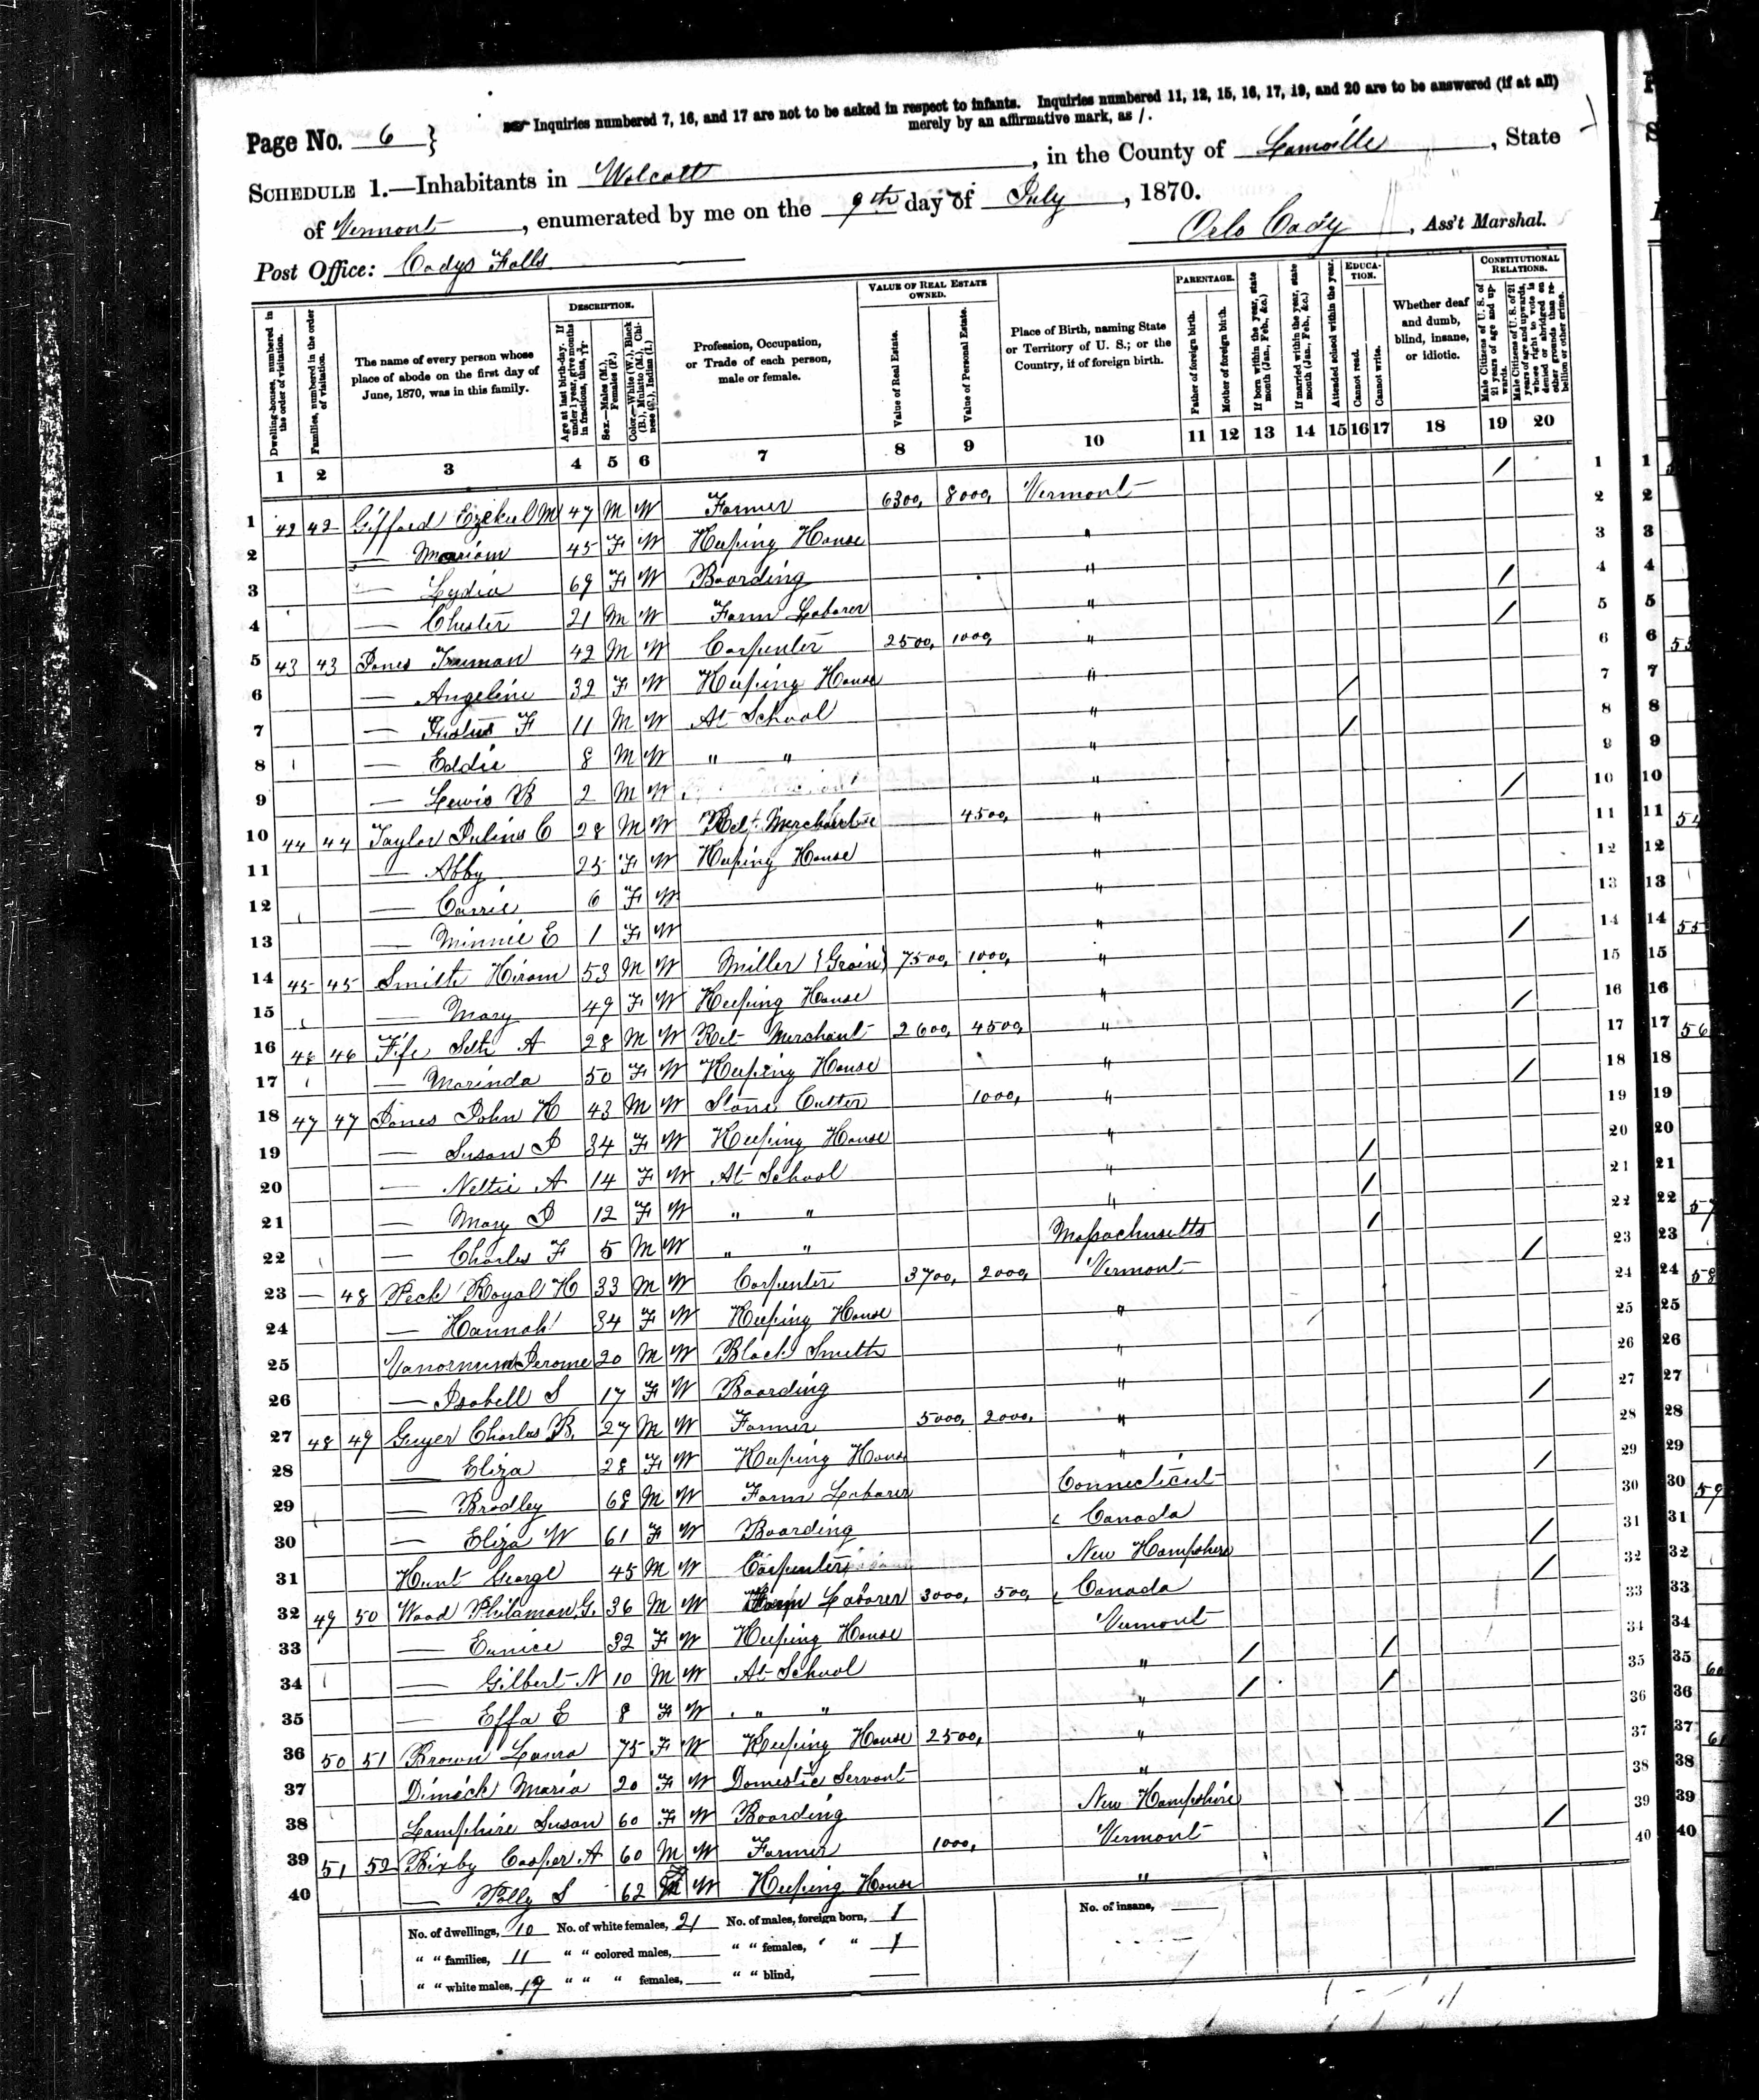 Page No. 6 }
☞ Inquiries numbered 7, 16, and 17 are not to be asked in respect to infants. Inquiries numbered 11, 12, 15, 16, 17, 19, and 20 are to be answered (if at all)
merely by an affirmative mark, as /.
SCHEDULE 1.—Inhabitants in Wolcott, in the County of Lamoille, State
of Vermont, enumerated by me on the 9th day of July, 1870.
Post Office: Cadys Falls
Orlo Cady, Ass't Marshal.
Dwelling-houses, numbered in the order of visitation.
Families, numbered in the order of visitation.
The name of every person whose place of abode on the first day of June, 1870, was in this family.
DESCRIPTION.
Age at last birth-day. If under 1 year, give months in fractions, thus,
Sex.—Males (M.), Females (F.)
Color.—White (W.), Black (B.), Mulatto (M.), Chinese (C.), Indian (I.)
Profession, Occupation, or Trade of each person, male or female.
VALUE OF REAL ESTATE OWNED.
Value of Real Estate.
Value of Personal Estate.
Place of Birth, naming State or Territory of U. S.; or the Country, if of foreign birth.
PARENTAGE.
Father of foreign birth.
Mother of foreign birth.
If born within the year, state month (Jan., Feb., &c.)
If married within the year, state month (Jan., Feb., &c.)
Attended school within the year.
EDUCATION.
Cannot read.
Cannot write.
Whether deaf and dumb, blind, insane, or idiotic.
CONSTITUTIONAL RELATIONS.
Male Citizens of U. S. of 21 years of age and upwards.
Male Citizens of U. S. of 21 years of age and upwards, whose right to vote is denied or abridged on other grounds than rebellion or other crime.
1 2 3 4 5 6 7 8 9 10 11 12 13 14 15 16 17 18 19 20
1 42 42 Gifford Ezekiel M 47 M W Farmer 6300, 8000, Vermont / 1
2 — Mariam 45 F W Keeping House " 2
3 — Lydia 69 F W Boarding " 3
4 — Chester 21 M W Farm Laborer " / 4
5 43 43 Jones Truman 42 M W Carpenter 2500, 1000, " / 5
6 — Angeline 32 F W Keeping House " 6
7 — F 11 M W At School " / 7
8 — Eddie 8 M W " " " / 8
9 — Lewis B 2 M W " 9
10 44 44 Taylor Julius C 28 M W Ret. Merchant 4500, " / 10
11 — Abby 25 F W Keeping House " 11
12 — Carrie 6 F W " 12
13 — Minnie E 1 F W " 13
14 45 45 Smith Hiram 53 M W Miller {Grain} 7500, 1000, " / 14
15 — Mary 49 F W Keeping House " 15
16 46 46 Fife Seth A 28 M W Ret Merchant 2600, 4500, " / 16
17 — Marinda 50 F W Keeping House " 17
18 47 47 Jones John H 43 M W Stone Cutter 1000, " / 18
19 — Susan J 34 F W Keeping House " 19
20 — Nettie A 14 F W At School " / 20
21 — Mary J 12 F W " " " / 21
22 — Charles F 5 M W " " Massachusetts / 22
23 — 48 Peck Royal H 33 M W Carpenter 3700, 2000, Vermont / 23
24 — Hannah 34 F W Keeping House " 24
25 Vanornum Jerome 20 M W Black Smith " 25
26 — Isabell S 17 F W Boarding " 26
27 48 49 Guyer Charles B. 27 M W Farmer 5000, 2000, " / 27
28 — Eliza 28 F W Keeping House " 28
29 — Bradley 68 M W Farm Laborer Connecticut / 29
30 — Eliza W 61 F W Boarding Canada 30
31 Hunt George 45 M W Carpenter New Hampshire / 31
32 49 50 Wood Philamon G. 36 M W Farm Laborer 3000, 500, Canada / 32
33 — Eunice 32 F W Keeping House Vermont 33
34 — Gilbert N 10 M W At School " / / 34
35 — Effa E 8 F W " " " / / 35
36 50 51 Brown Laura 75 F W Keeping House 2500, " 36
37 Dimick Maria 20 F W Domestic Servant " 37
38 Lamphire Susan 60 F W Boarding New Hampshire 38
39 51 52 Bixby Cooper A 60 M W Farmer 1000, Vermont / 39
40 — Polly S 62 F W Keeping House " 40
No. of dwellings, 10 No. of white females, 21 No. of males, foreign born, 1 No. of insane,
" " families, 11 " " colored males, " " females, " " 1
" " white males, 19 " " " females, " " blind,